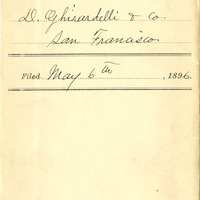 D. Ghirardelli & Co.
San Francisco.
Filed May 6th, 1896.